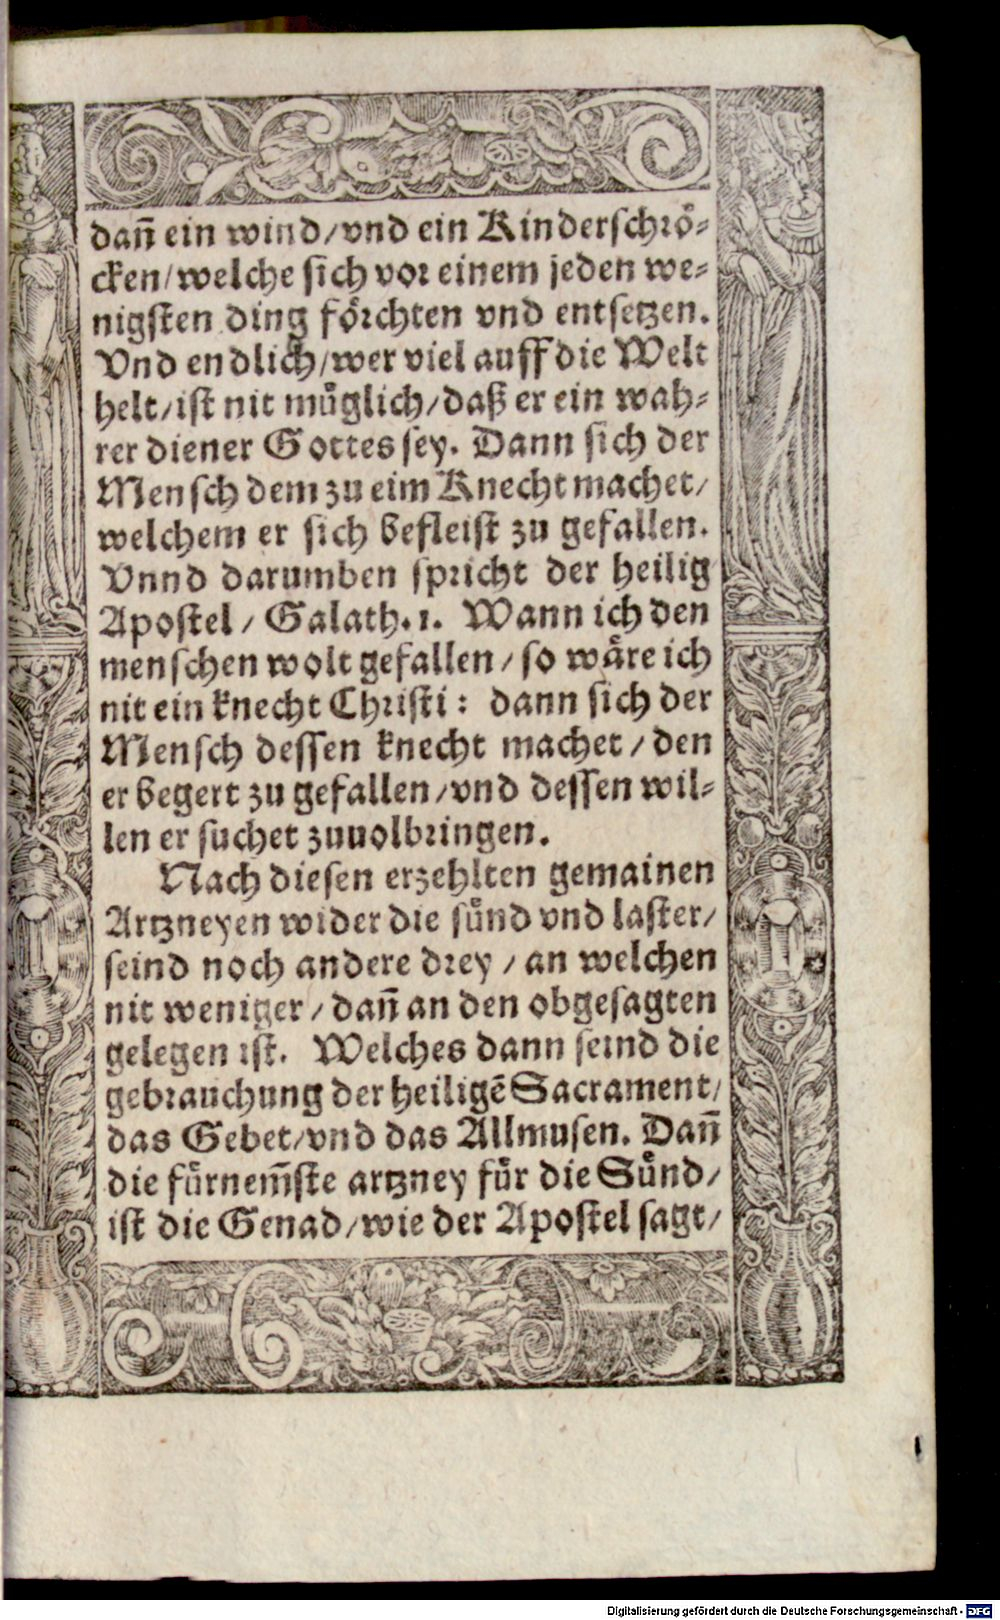 dañ ein wind/vnd ein Kinderschrö⸗
cken/welche sich vor einem jeden we⸗
nigsten ding förchten vnd entsetzen.
Vnd endlich/wer viel auff die Welt
helt/ist nit müglich/daß er ein wah⸗
rer diener Gottes sey. Dann sich der
Mensch dem zu eim Knecht machet/
welchem er sich befleist zu gefallen.
Vnnd darumben spricht der heilig
Apostel/ Galath.1. Wann ich den
menschen wolt gefallen/ so wäre ich
nit ein knecht Christi: dann sich der
Mensch dessen knecht machet/ den
er begert zu gefallen/vnd dessen wil⸗
len er suchet zuuolbringen.
Nach diesen erzehlten gemainen
Artzneyen wider die sünd vnd laster/
seind noch andere drey/ an welchen
nit weniger/ dañ an den obgesagten
gelegen ist. Welches dann seind die
gebrauchung der heiligē Sacrament/
das Gebet/vnd das Allmusen. Dañ
die fürnem̃ste artzney für die Sünd/
ist die Genad/wie der Apostel sagt/
Digitalisierung gefördert durch die Deutsche Forschungsgemeinschaft - DFG